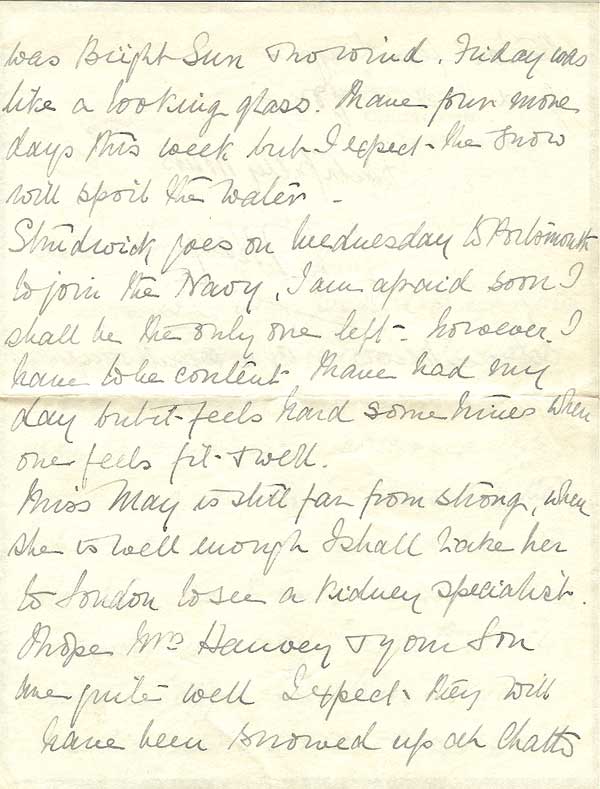 was Bright Sun & no wind. Friday was
like a looking glass. I have four more
days this week but I expect the snow
will spoil the water -
Studwick goes on Wednesday to Portsmouth
to join the Navy, I am afraid soon I
shall be the only one left - however I
have to be content I have had my
day but it feels hard some times when
one feels fit & well.
Miss May is still far from strong, when
she is well enough I shall take her
to London to see a Kidney specialist.
I hope Mrs Hanvey & your Son
are quite well I expect they will
have been snowed up at Chatto